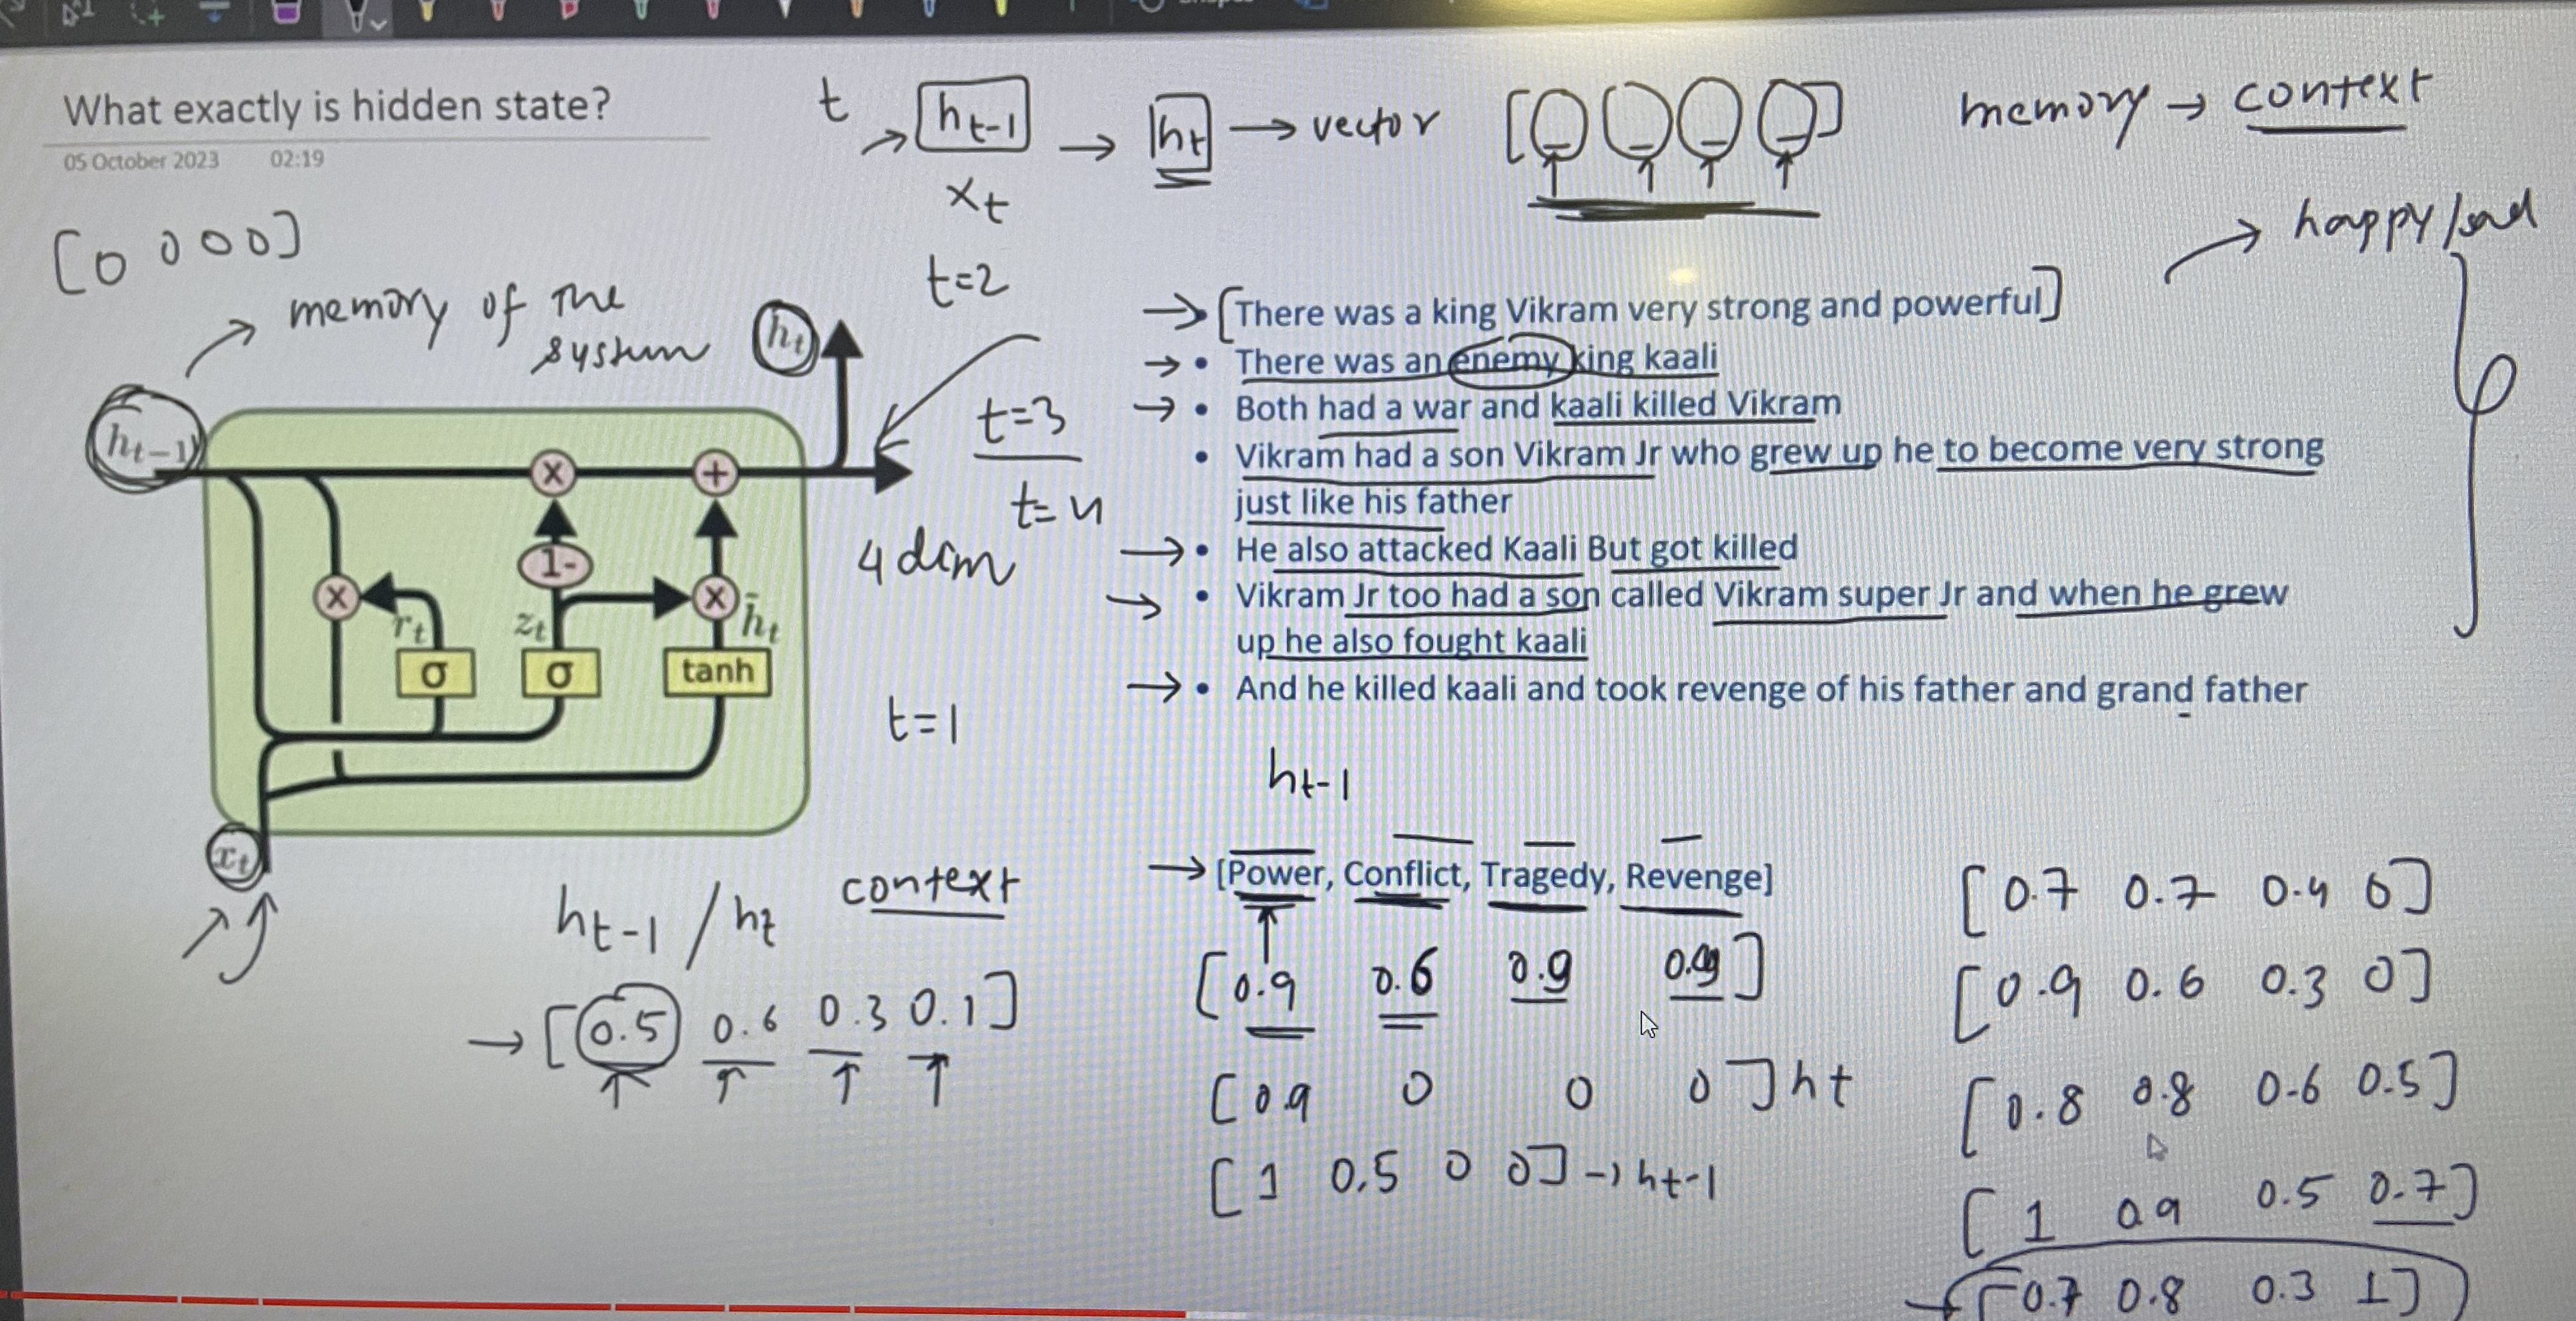 What exactly is hidden state?
05 October 2023 02:19
t
h_t-1
x_t
h_t → vector [– – – –]
memory → context
happy/sad
[0 0 0 0]
memory of the
system
h_t
h_t-1
t=2
t=3
t=4
4 dim
t=1
× +
1-
× ×
r_t z_t h̃_t
σ σ tanh
x_t
→ [There was a king Vikram very strong and powerful]
→ • There was an enemy king kaali
→ • Both had a war and kaali killed Vikram
• Vikram had a son Vikram Jr who grew up he to become very strong
just like his father
→ • He also attacked Kaali But got killed
→ • Vikram Jr too had a son called Vikram super Jr and when he grew
up he also fought kaali
→ • And he killed kaali and took revenge of his father and grand father
h_t-1 / h_t context
→ [0.5 0.6 0.3 0.1]
h_t-1
→ [Power, Conflict, Tragedy, Revenge]
[0.9 0.6 0.9 ]
[0.9 0 0 0] h_t
[1 0.5 0 0] → h_t-1
[0.7 0.7 0.4 0]
[0.9 0.6 0.3 0]
[0.8 0.8 0.6 0.5]
[1 0.9 0.5 0.7]
→ [0.7 0.8 0.3 1]